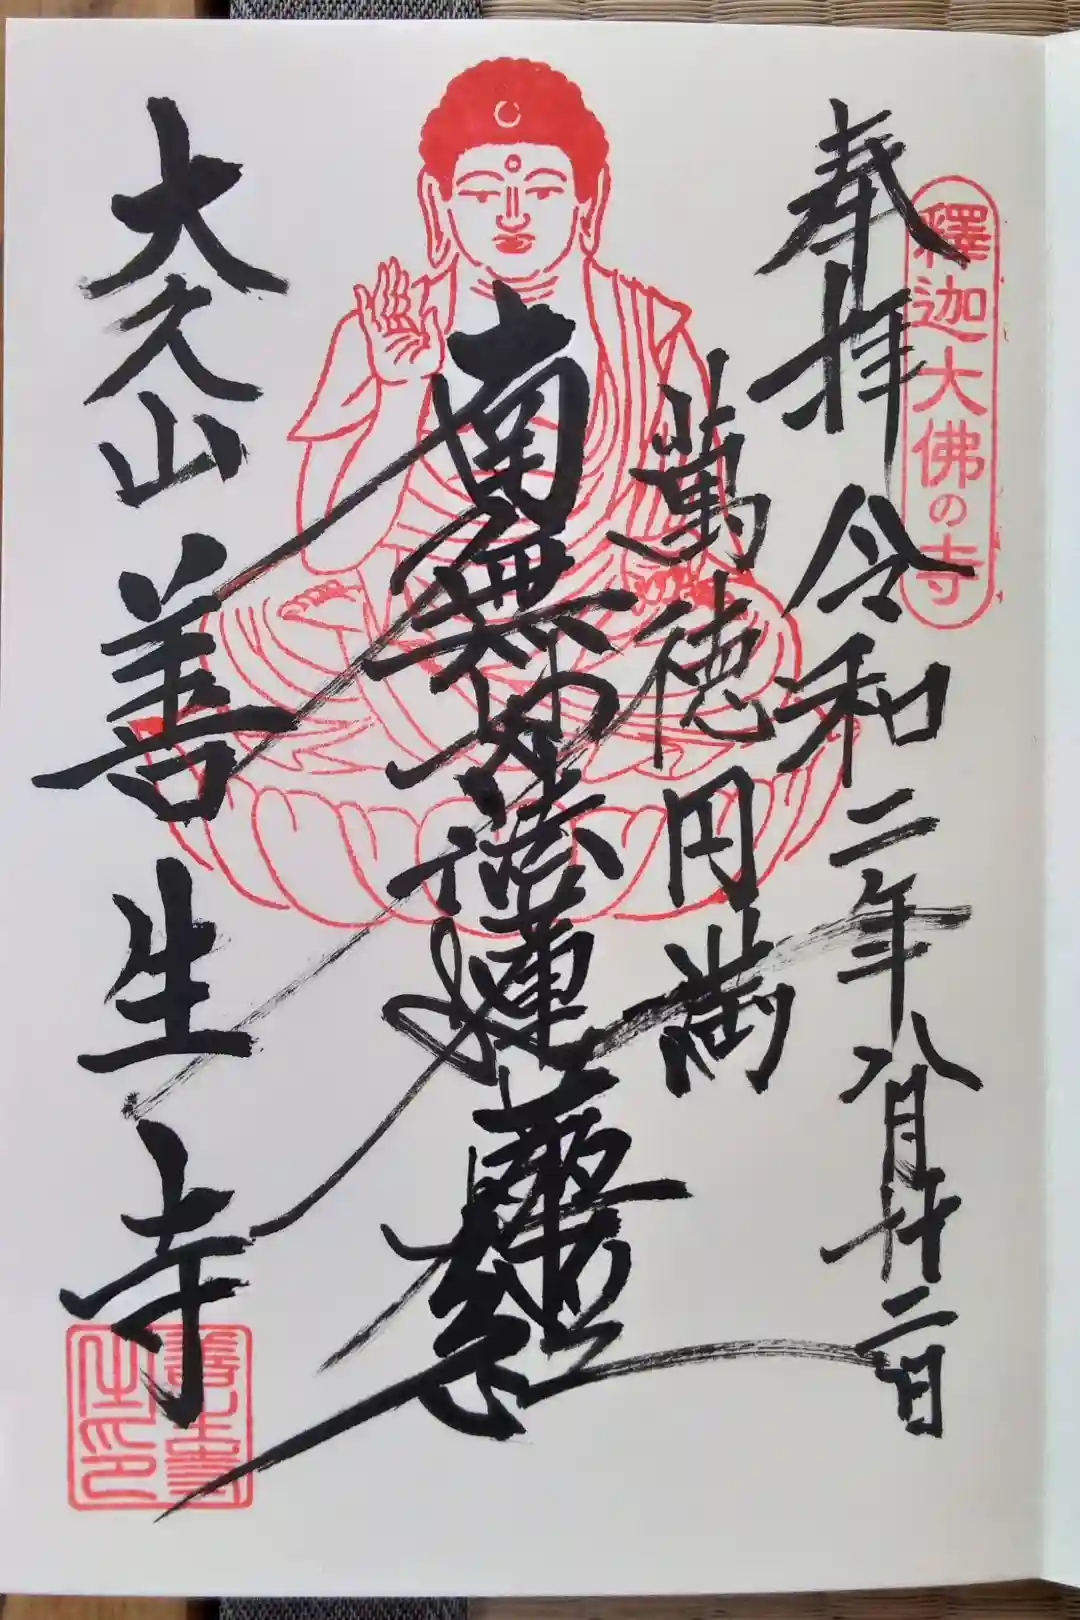 釋迦大佛の寺
奉拝 令和二年八月廿二日
萬徳円満
南無妙法蓮華経
大久山 善生寺
善生寺之印